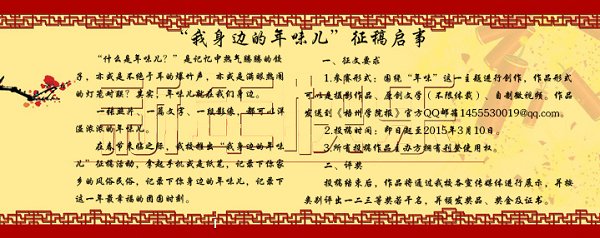 “我身边的年味儿”征稿启事
“什么是年味儿？”是记忆中热气腾腾的饺
子，亦或是不绝于耳的爆竹声，亦或是满眼热闹
的灯笼对联？其实，年味儿就在我们身边。
一张照片、一篇文字、一段影像，都可以洋
溢浓浓的年味儿。
在春节来临之际，我校推出“我身边的年味
儿”征稿活动，拿起手机或是纸笔，记录下你家
乡的风俗民俗，记录下你身边的年味儿，记录下
这一年最幸福的团圆时刻。
一、征文要求
1.参赛形式：围绕“年味”这一主题进行创作，作品形式
可以是摄影作品、原创文学（不限体裁）、自制微视频。作品
发送到《梧州学院报》官方QQ邮箱1455530019@qq.com。
2.投稿时间：即日起至2015年3月10日。
3.所有投稿作品主办方拥有刊登使用权。
二、评奖
投稿结束后，作品将通过我校各宣传媒体进行展示，并按
类别评出一二三等奖若干名，并颁发奖品、奖金及证书。